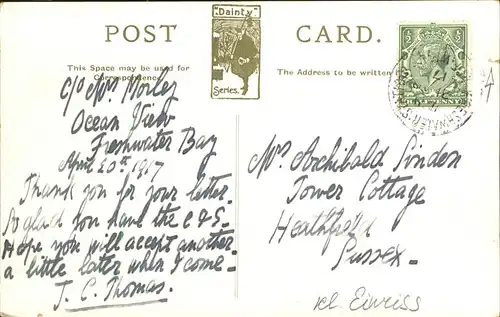 POST "Dainty" Series. CARD.
This Space may be used for
Correspondence
The Address to be written
c/o Mrs Morley
Ocean View
Freshwater Bay
April 20th 1917
Thank you for your letter.
So glad you have the
Hope you will accept another
a little later when I come -
J. C. Thomas.
Mrs Archibald Linden
Tower Cottage
Heathfield
Sussex -
kl. Einriss